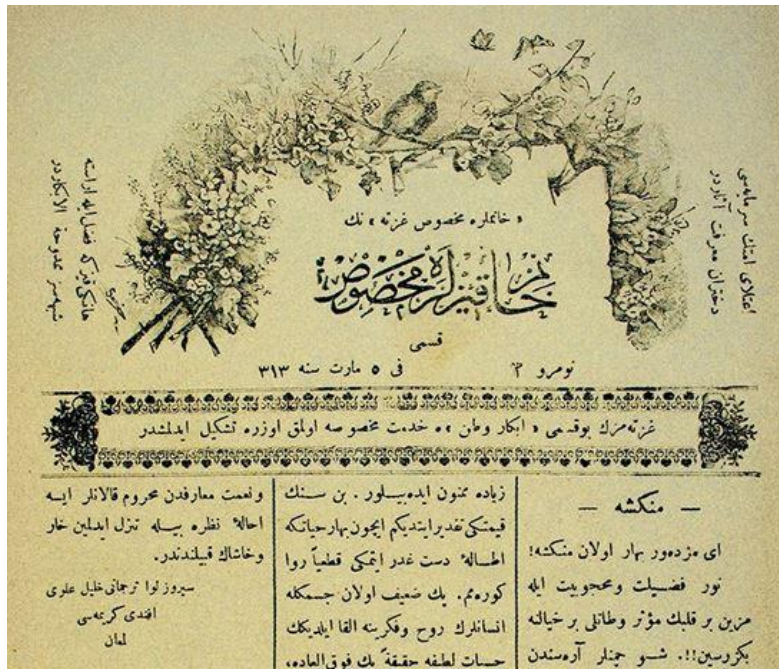 « خانملره مخصوص غزته » نك
خانم قيزلره مخصوص
قسمى
نومرو ٢
فى ٥ مارت سنه ٣١٣
اعتلاى امتك سرمايه‌سى
دختران معرفت آثاردر
هانكى قيز كه فضل ايله اراسته
شبهه‌سز ممدوحة الافكاردر
غزته‌مزك بوقسمى « ابكار وطن » ه خدمت مخصوصه اولمق اوزره تشكيل ايدلمشدر
— منكشه —
اى مژده‌ور بهار اولان منكشه!
نور فضيلت ومحجوبيت ايله
مزين بر قلبك مؤثر وطاتلى بر خيالنه
بكزرسين!!. شو چمنلر آره‌سندن
زياده ممنون ايده‌بيلور . بن سنك
قيمتكى تقدير ايتديكم ايچون بهار حياتكه
اطالهٔ دست غدر ايتمكى قطعياً روا
كوره‌مم. پك ضعيف اولان جسمكله
انسانلرك روح وفكرينه القا ايلديكك
حسيات لطيفه حقيقةً پك فوق العاده،
ونعمت معارفدن محروم قالانلر ايسه
احالهٔ نظره بيله تنزل ايدلمين خار
وخاشاك قبيلندندر.
سيروز لوا ترجمانى خليل علوى
افندى كريمه‌سى
لمعان